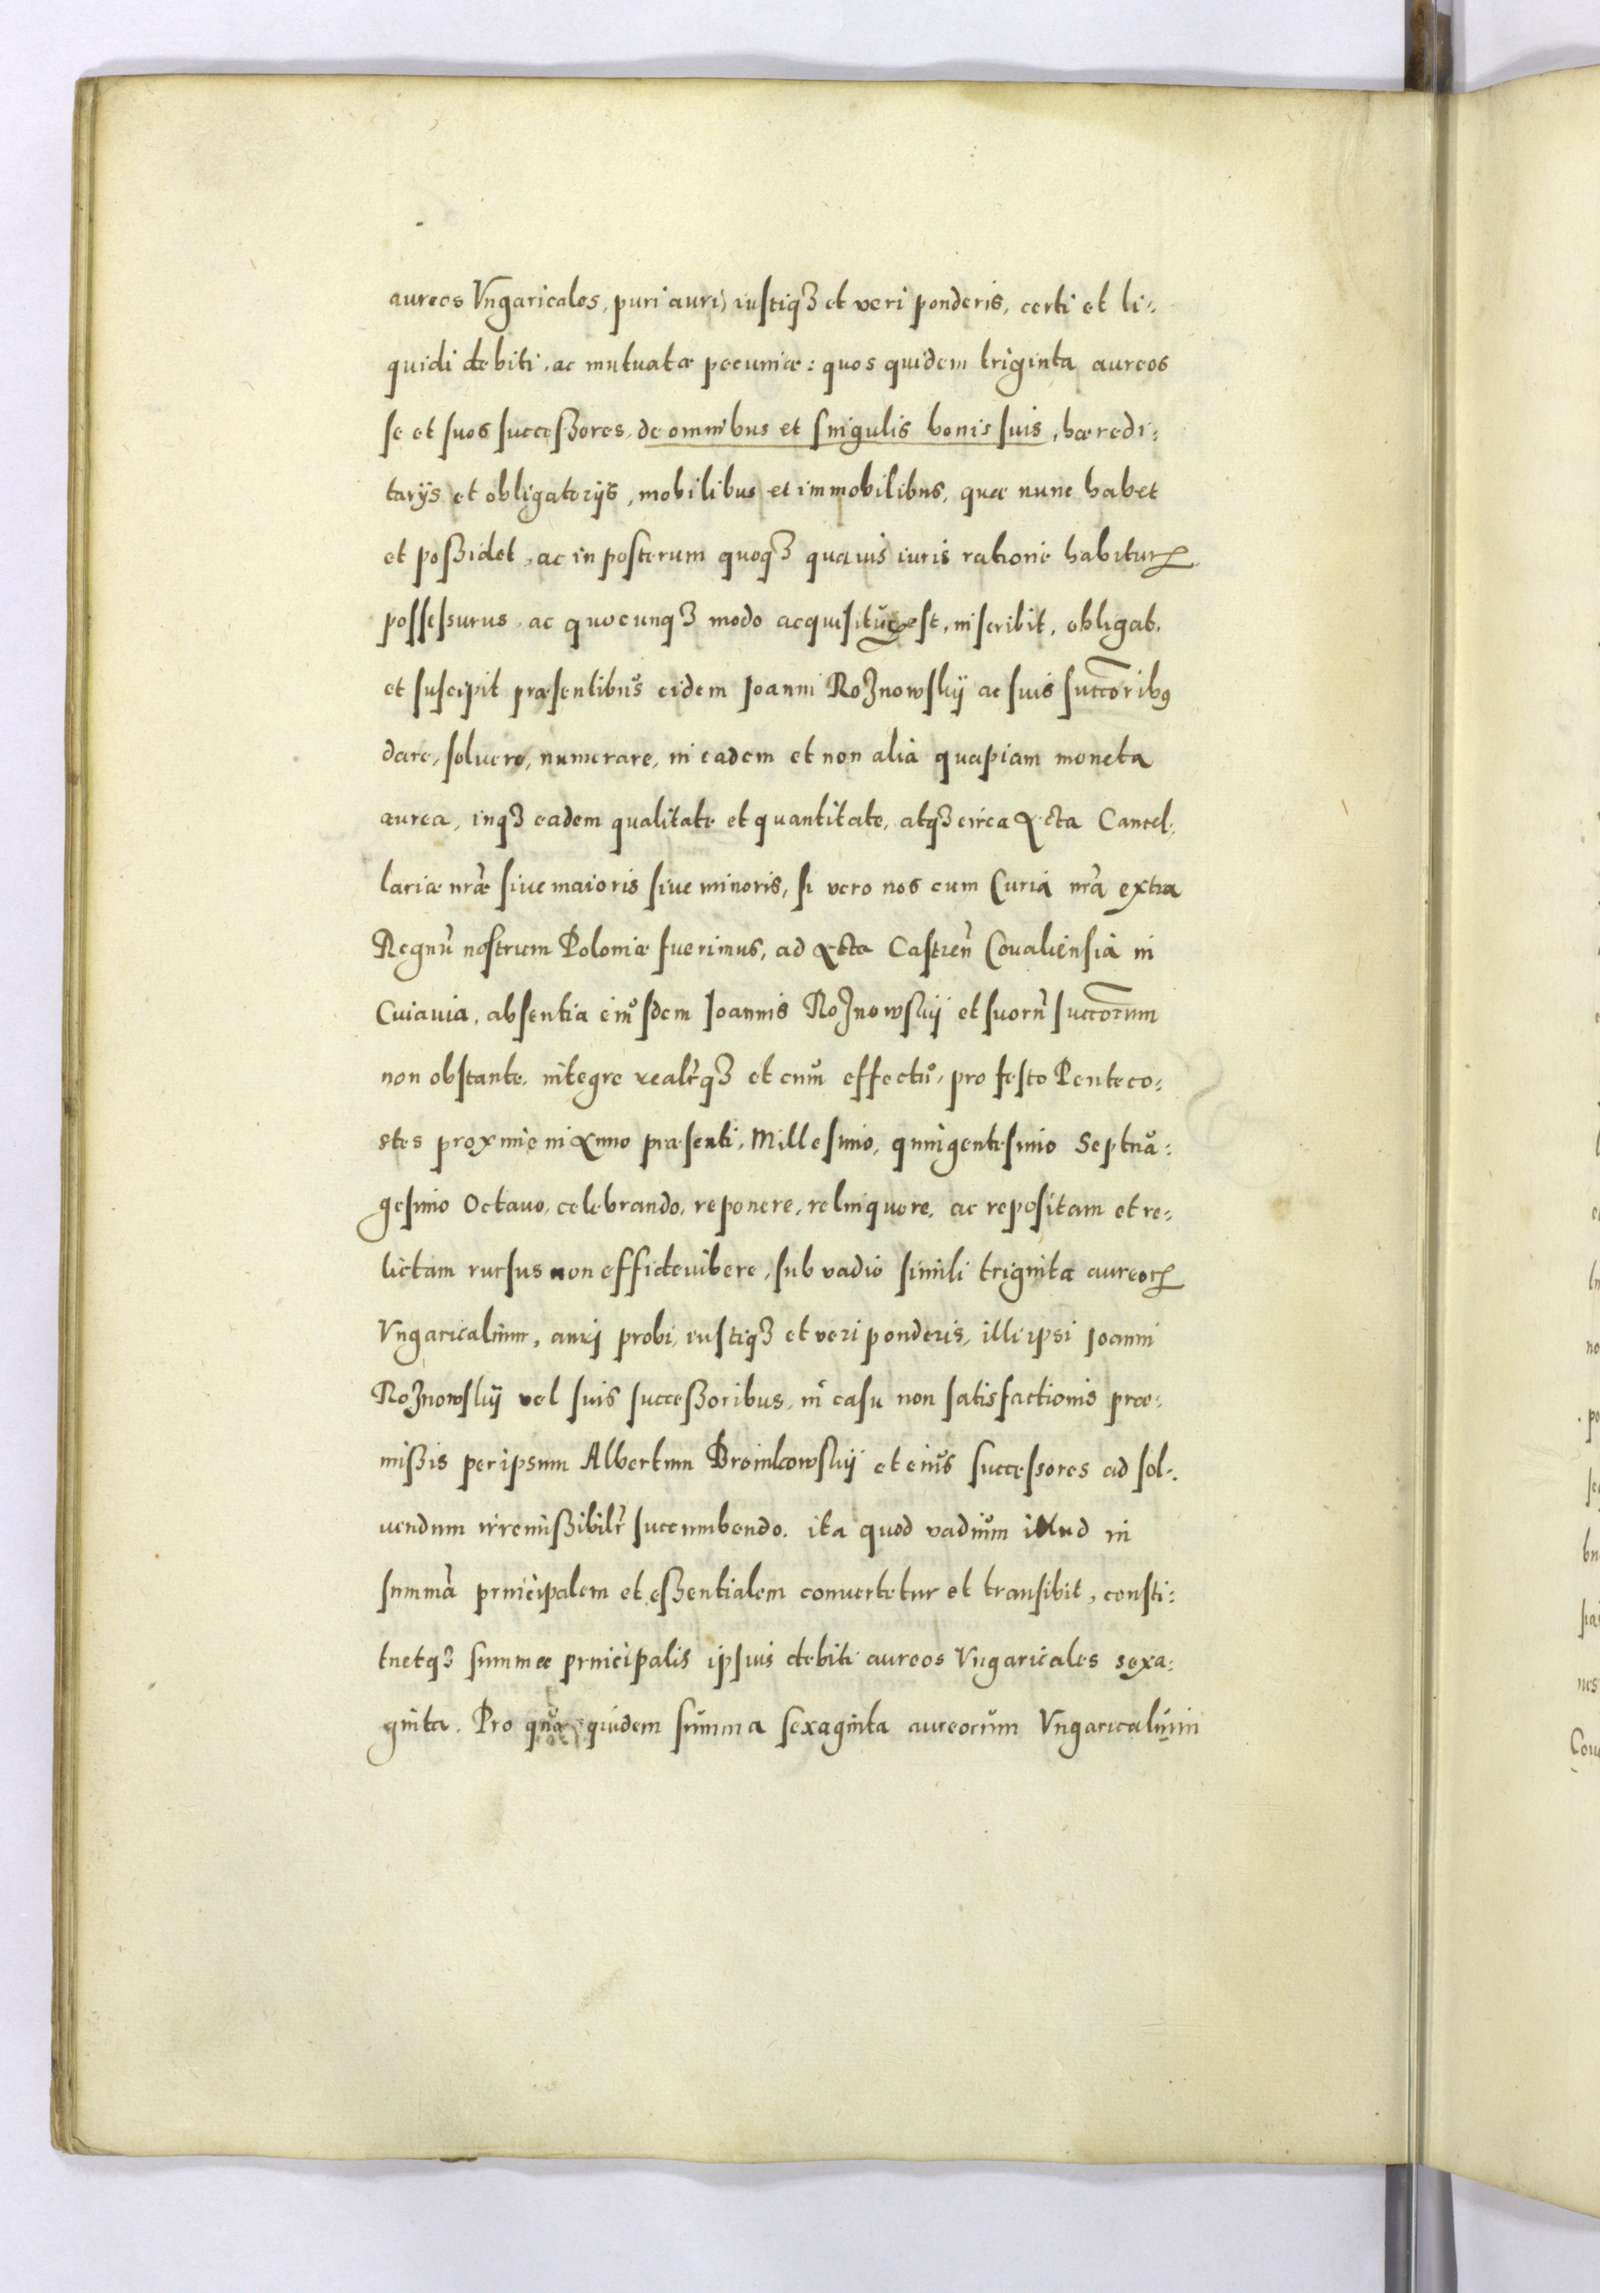 aureos Vngaricales, puri auri, iustiqꝫ et veri ponderis, certi et li-
quidi debiti, ac mutuatæ pecuniæ: quos quidem triginta aureos
se et suos succeßores, de omnibus et singulis bonis suis, hæredi-
tarijs et obligatorijs, mobilibus et immobilibus, quæ nunc habet
et poßidet, ac in posterum quoqꝫ quauis iuris ratione habiturꝰ
possessurus, ac quocunqꝫ modo acquisiturꝰ est, inscribit, obligat,
et suscipit præsentibus eidem Joanni Roznowskij ac suis succ̄oribꝰ
dare, soluere, numerare, in eadem et non alia quapiam moneta
aurea, inqꝫ eadem qualitate et quantitate, atqꝫ circa Acta Cancel-
lariæ nr̃æ siue maioris siue minoris, si vero nos cum Curia nr̃a extra
Regnũ nostrum Poloniæ fuerimus, ad Acta Castren̄ Coualiensia in
Cuiauia, absentia eiusdem Joannis Roznowskij et suorũ succ̄orum
non obstante, integre realr̃qꝫ et cum effectu, pro festo Penteco-
stes proxime in Anno præsenti, Millesimo, quingentesimo Septua-
gesimo Octauo, celebrando, reponere, relinquere, ac repositam et re-
lictam rursus non effideiubere, sub vadio simili triginta aureorꝝ
Vngaricalium, auri probi, iustiqꝫ et veri ponderis, illi ipsi Joanni
Roznowskij vel suis succeßoribus, in casu non satisfactionis præ-
mißis per ipsum Albertum Droinkowskij et eius successores ad sol-
uendum irremißibilr̃ succumbendo. ita quod vadium illud in
summã principalem et eßentialem conuertetur et transibit, consti-
tuetqꝫ summæ principalis ipsius debiti aureos Vngaricales sexa-
ginta. Pro qua quidem summa sexaginta aureorum Vngaricalium